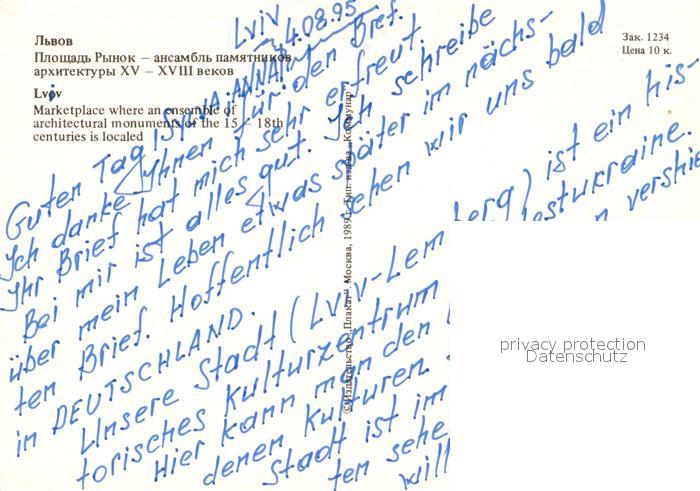 Львов
Площадь Рынок – ансамбль памятников
архитектуры XV – XVIII веков
Lvov
Marketplace where an ensemble of
architectural monuments of the 15 – 18th
centuries is localed
Зак. 1234
Цена 10 к.
© Издательство „Плакат“ Москва, 1989 г. Тип. изд-ва „Коммунар“
Lviv
24.08.95
Guten Tag,
Ich danke Ihnen für den Brief.
Ihr Brief hat mich sehr erfreut.
Bei mir ist alles gut. Ich schreibe
über mein Leben etwas später im nächs-
ten Brief. Hoffentlich sehen wir uns bald
in DEUTSCHLAND.
Unsere Stadt (Lviv-Lem berg) ist ein his-
torisches Kulturzentrum estukraine.
Hier kann man den n verschie
denen Kulturen
Stadt ist im
ten sehe
will
privacy protection
Datenschutz